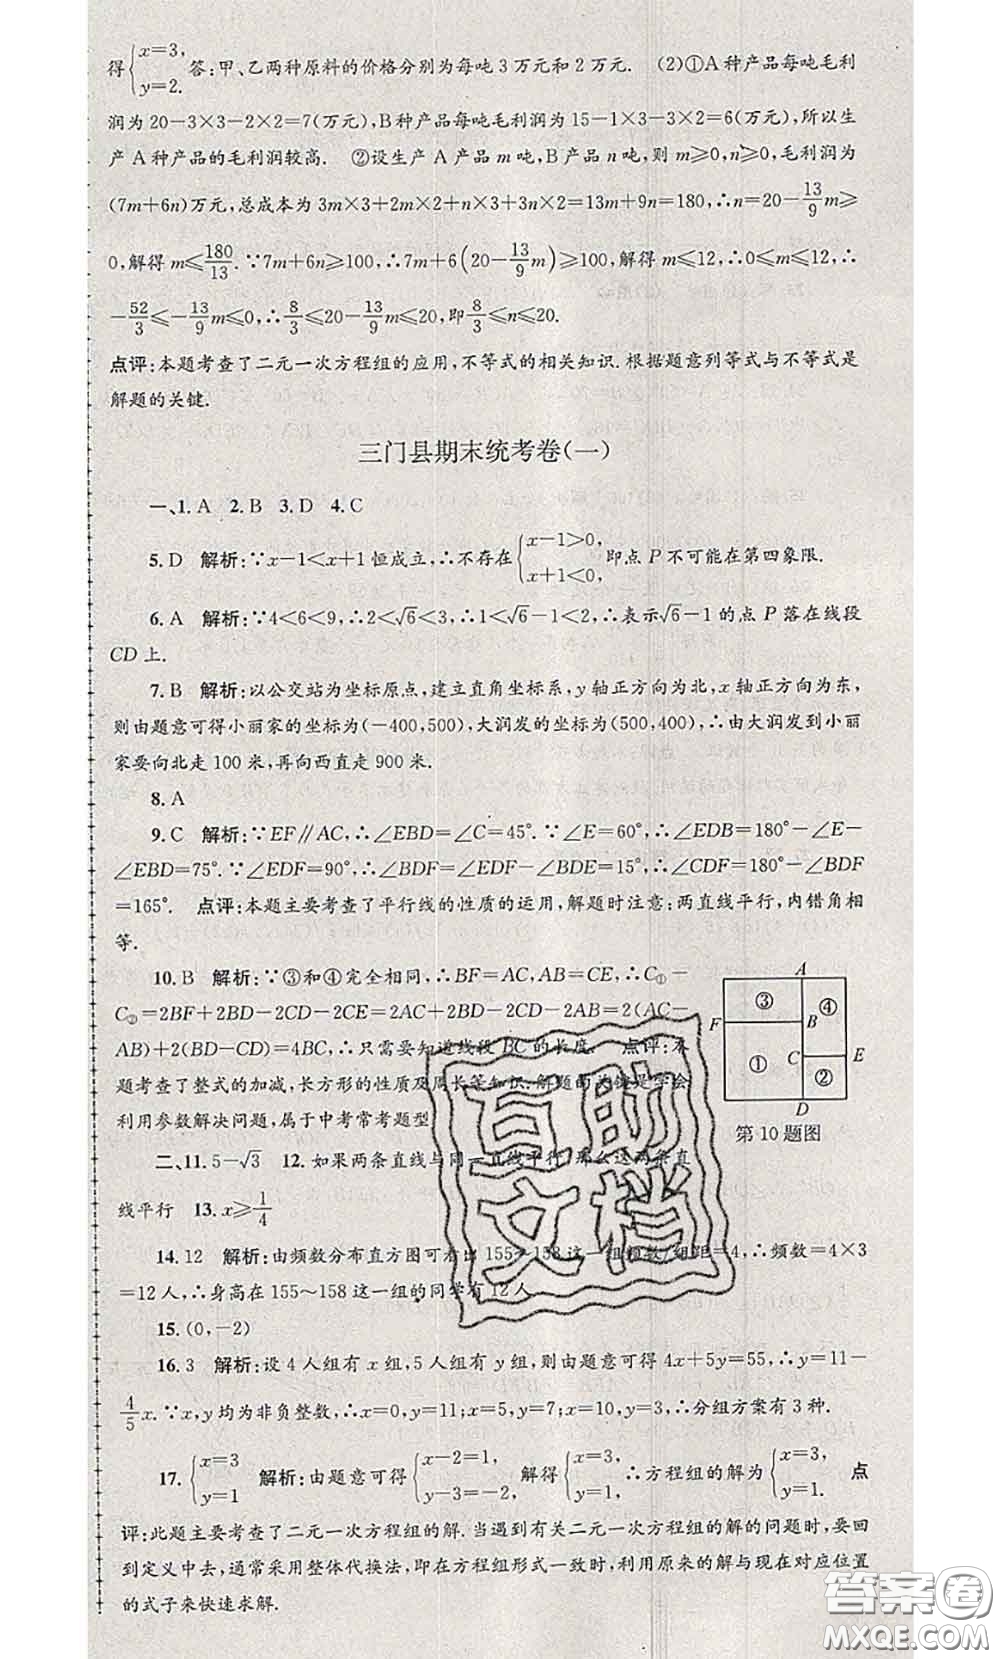 得{x=3, y=2. 答:甲、乙两种原料的价格分别为每吨3万元和2万元. (2)①A种产品每吨毛利
润为20-3×3-2×2=7(万元),B种产品每吨毛利润为15-1×3-3×2=6(万元),所以生
产A种产品的毛利润较高. ②设生产A产品m吨,B产品n吨,则m≥0,n≥0,毛利润为
(7m+6n)万元,总成本为3m×3+2m×2+n×3+3n×2=13m+9n=180,∴n=20-13/9m≥
0,解得m≤180/13.∵7m+6n≥100,∴7m+6(20-13/9m)≥100,解得m≤12,∴0≤m≤12,∴
-52/3≤-13/9m≤0,∴8/3≤20-13/9m≤20,即8/3≤n≤20.
点评:本题考查了二元一次方程组的应用,不等式的相关知识.根据题意列等式与不等式是
解题的关键.
三门县期末统考卷(一)
一、1. A 2. B 3. D 4. C
5. D 解析:∵x-1<x+1恒成立,∴不存在{x-1>0, x+1<0, 即点P不可能在第四象限.
6. A 解析:∵4<6<9,∴2<√6<3,∴1<√6-1<2,∴表示√6-1的点P落在线段
CD上.
7. B 解析:以公交站为坐标原点,建立直角坐标系,y轴正方向为北,x轴正方向为东,
则由题意可得小丽家的坐标为(-400,500),大润发的坐标为(500,400),∴由大润发到小丽
家要向北走100米,再向西直走900米.
8. A
9. C 解析:∵EF∥AC,∴∠EBD=∠C=45°.∵∠E=60°,∴∠EDB=180°-∠E-
∠EBD=75°.∵∠EDF=90°,∴∠BDF=∠EDF-∠BDE=15°,∴∠CDF=180°-∠BDF
=165°. 点评:本题主要考查了平行线的性质的运用,解题时注意:两直线平行,内错角相
等.
10. B 解析:∵③和④完全相同,∴BF=AC,AB=CE,∴C①-
C②=2BF+2BD-2CD-2CE=2AC+2BD-2CD-2AB=2(AC-
AB)+2(BD-CD)=4BC,∴只需要知道线段BC的长度. 点评:本
题考查了整式的加减,长方形的性质及周长等知识.解题的关键是学会
利用参数解决问题,属于中考常考题型
A
③
④
F
B
①
C
E
②
D
第10题图
二、11. 5-√3 12. 如果两条直线与同一直线平行,那么这两条直
线平行 13. x≥1/4
14. 12 解析:由频数分布直方图可看出155~158这一组频数/组距=4,∴频数=4×3
=12人,∴身高在155~158这一组的同学有12人
15. (0,-2)
16. 3 解析:设4人组有x组,5人组有y组,由题意可得4x+5y=55,∴y=11-
4/5x.∵x,y均为非负整数,∴x=0,y=11;x=5,y=7;x=10,y=3,∴分组方案有3种.
17. {x=3 y=1 解析:由题意可得{x-2=1, y-3=-2, 解得{x=3, y=1, ∴方程组的解为{x=3, y=1. 点
评:此题主要考查了二元一次方程组的解.当遇到有关二元一次方程组的解的问题时,要
回到定义中去,通常采用整体代换法,即在方程组形式一致时,利用原来的解与现在对应位置
的式子来快速求解.
互助
文档
答案卷
MXQE.COM